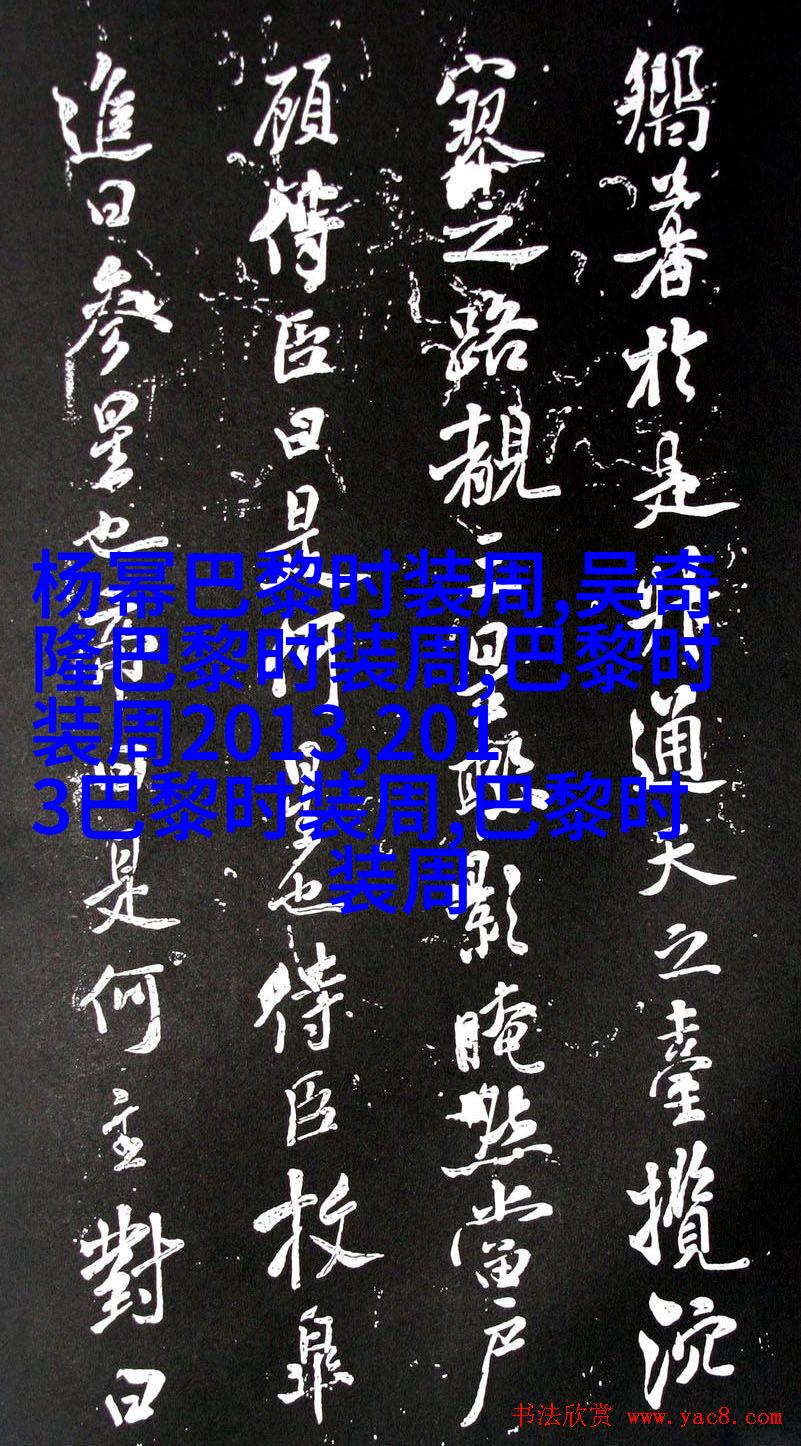 於是昇通天之臺攬沉
寥之路覩三星耿影晻然當戶
顧侍臣曰是何星也侍臣枚皋
進曰參星也帝曰是何主對曰
杨幂巴黎时装周,吴奇
隆巴黎时装周,巴黎时
装周2013,201
3巴黎时装周,巴黎时
装周
书法欣赏 www.yac8.com